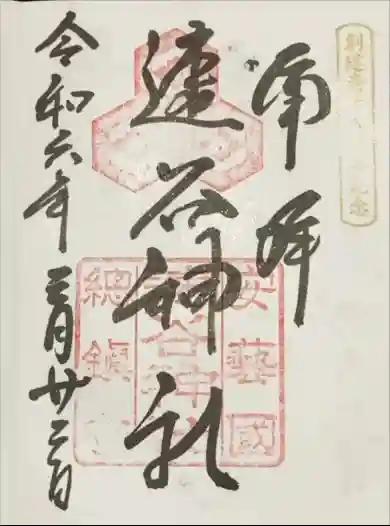 奉拝
速谷神社
令和六年三月廿二日
安藝國
速谷神社
總鎮守